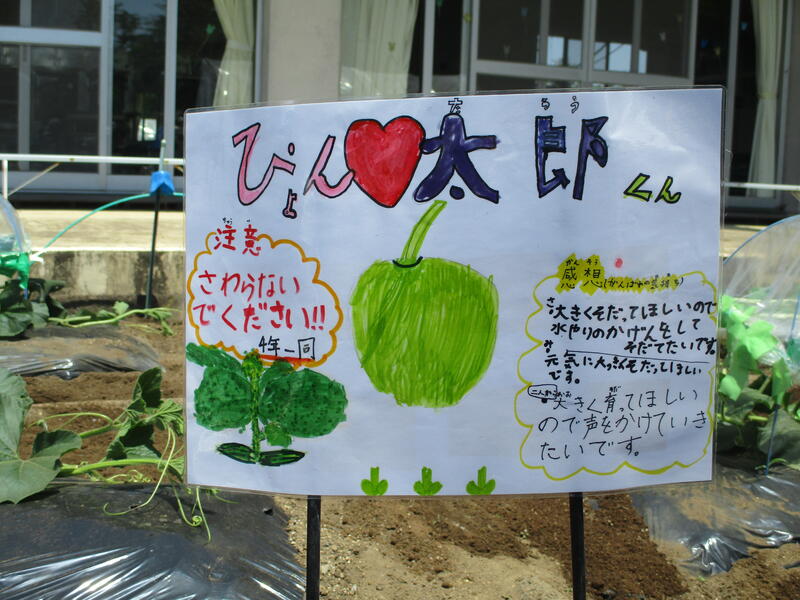 ぴょん♥太郎くん
たろう
ちゅうい
注意
さわらない
でください!!
4年一同
かんそう
感想
大きくそだってほしいので
水やりのかげんをして
そだてたいです。
元気に大っきくそだってほしい
です。
大きく育ってほしい
ので声をかけていき
たいです。